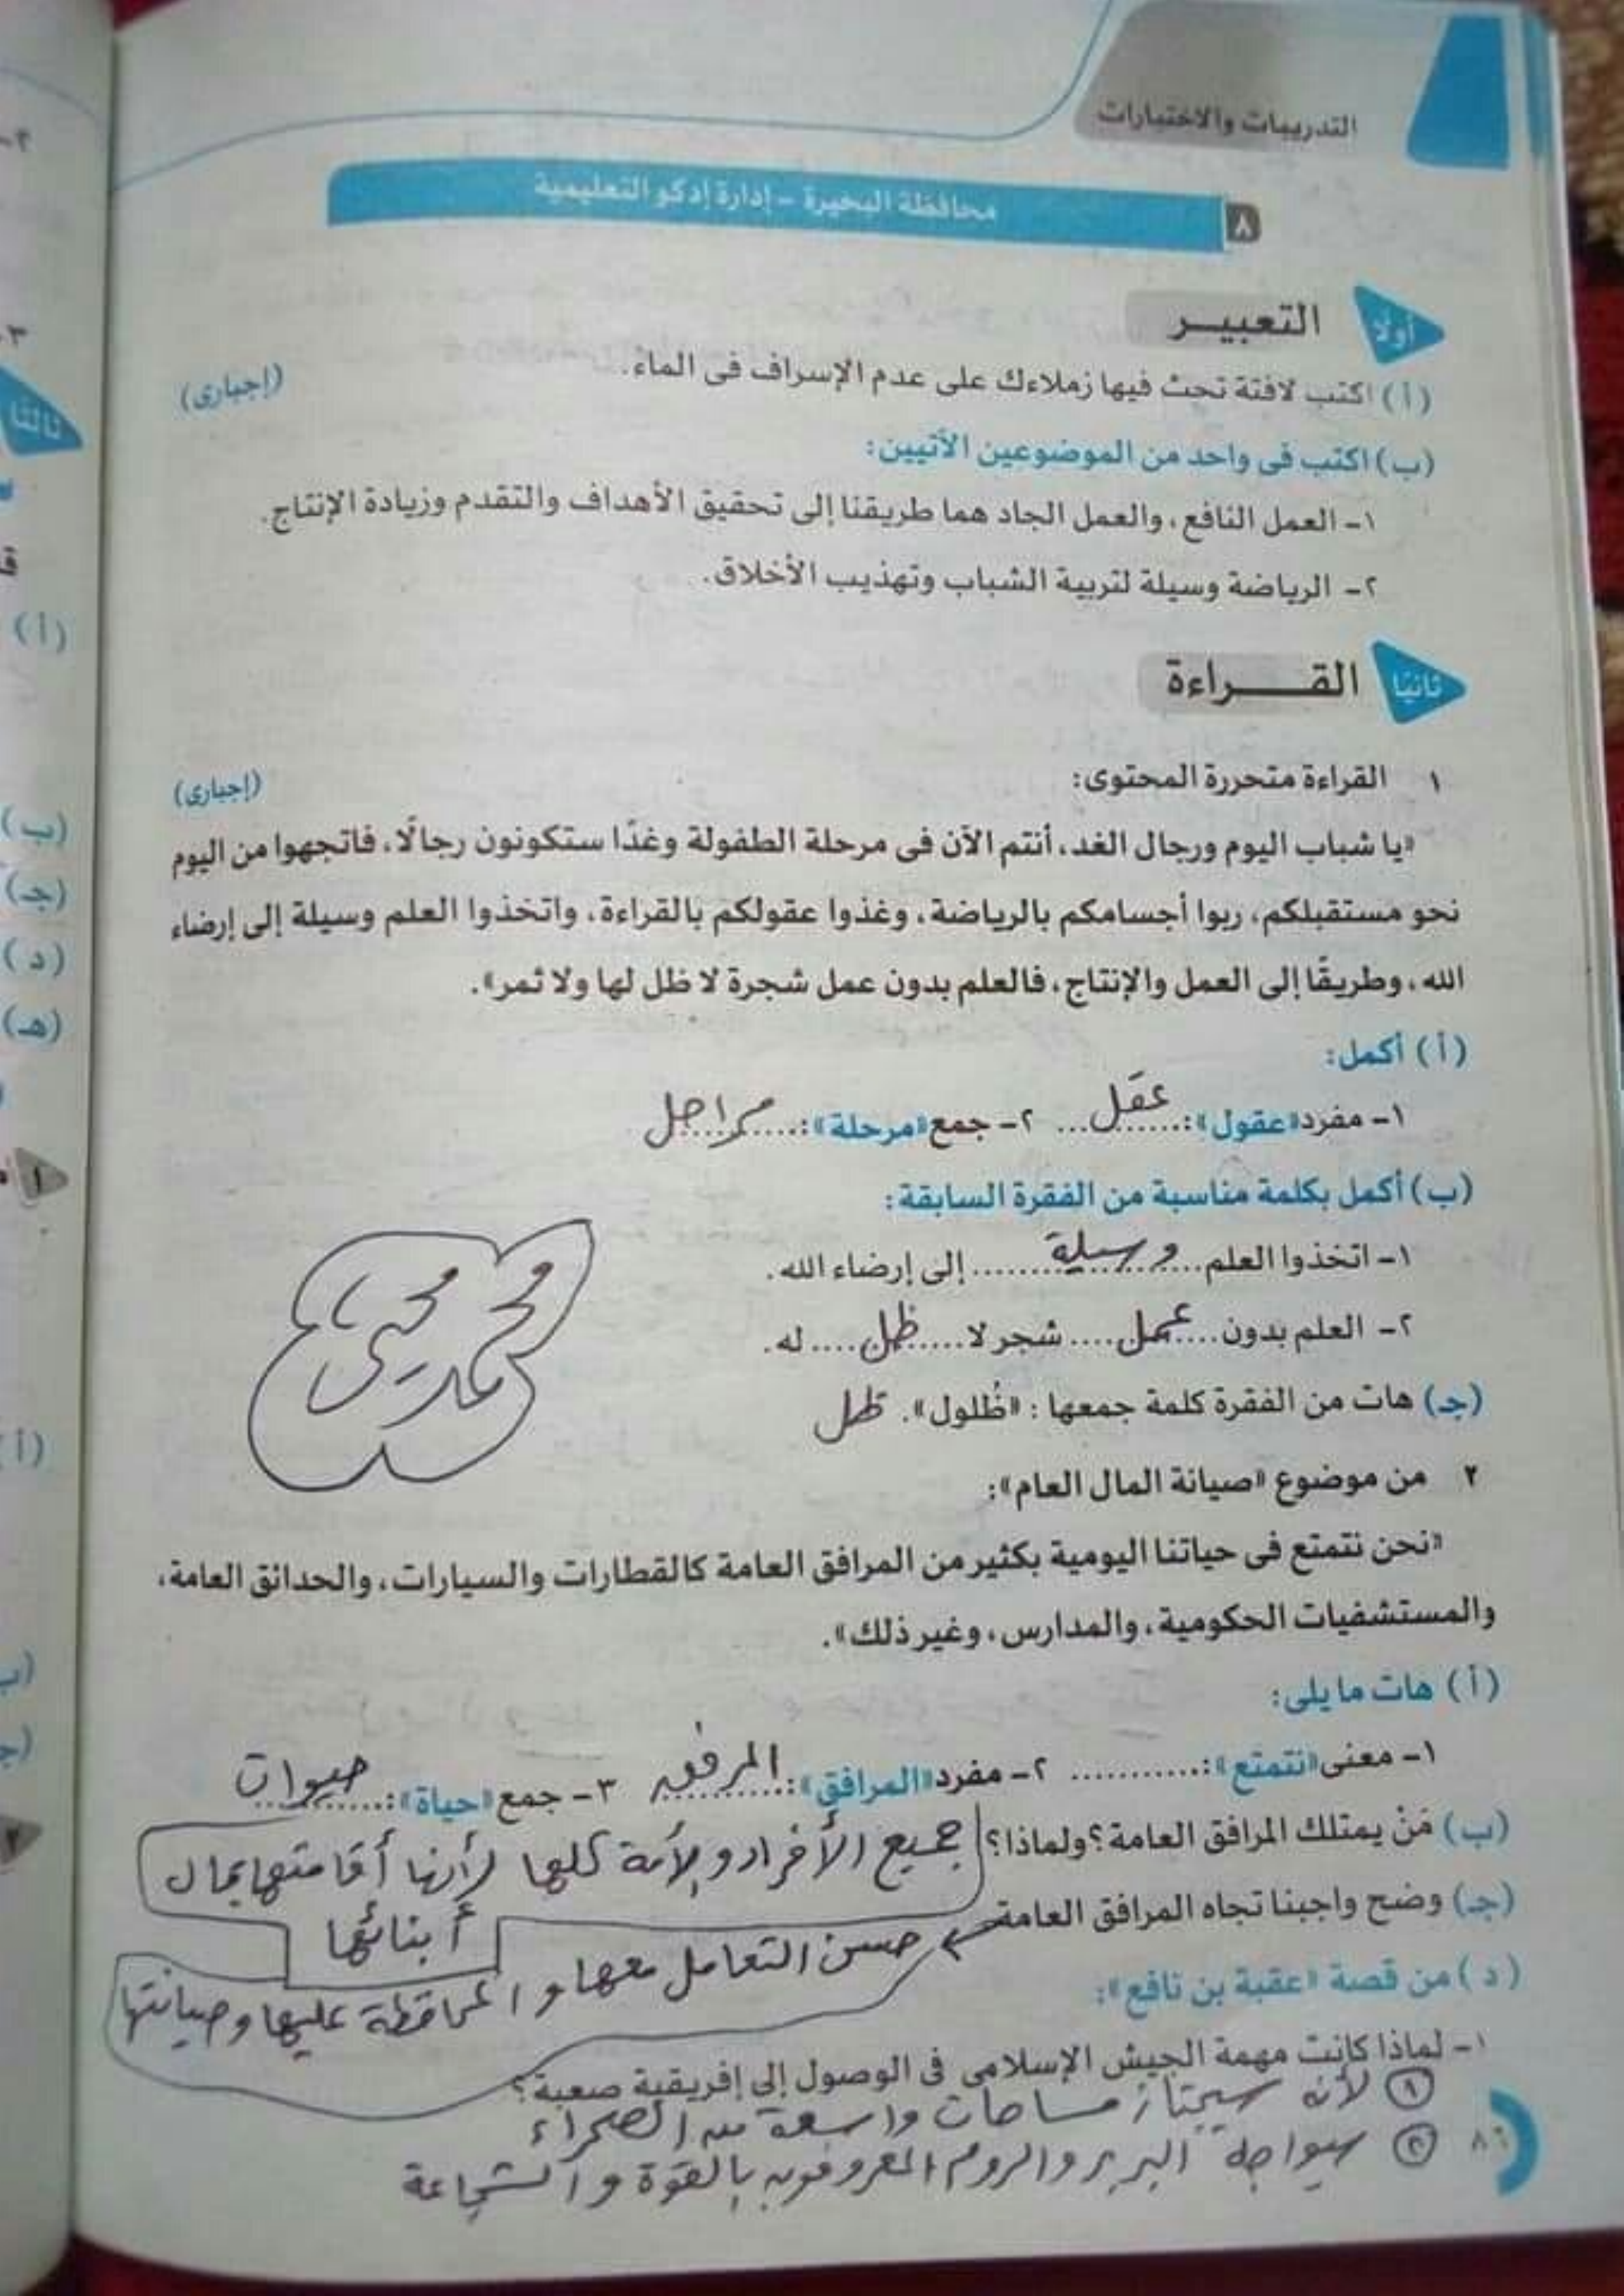 التدريبات والاختبارات
٨ محافظة البحيرة - إدارة إدكو التعليمية
أولا التعبيــر
(أ) اكتب لافتة تحث فيها زملاءك على عدم الإسراف فى الماء. (إجبارى)
(ب) اكتب فى واحد من الموضوعين الآتيين:
١- العمل النافع، والعمل الجاد هما طريقنا إلى تحقيق الأهداف والتقدم وزيادة الإنتاج.
٢- الرياضة وسيلة لتربية الشباب وتهذيب الأخلاق.
ثانيا القـــراءة
١ القراءة متحررة المحتوى: (إجبارى)
«يا شباب اليوم ورجال الغد، أنتم الآن فى مرحلة الطفولة وغدًا ستكونون رجالًا، فاتجهوا من اليوم
نحو مستقبلكم، ربوا أجسامكم بالرياضة، وغذوا عقولكم بالقراءة، واتخذوا العلم وسيلة إلى إرضاء
الله، وطريقًا إلى العمل والإنتاج، فالعلم بدون عمل شجرة لا ظل لها ولا ثمر».
(أ) أكمل:
١- مفرد «عقول»: عقل ٢- جمع «مرحلة»: مراحل
(ب) أكمل بكلمة مناسبة من الفقرة السابقة:
١- اتخذوا العلم وسيلة إلى إرضاء الله.
٢- العلم بدون عمل شجر لا ظل له.
(جـ) هات من الفقرة كلمة جمعها: «ظُلول». ظل
محمد يحيى
٢ من موضوع «صيانة المال العام»:
«نحن نتمتع فى حياتنا اليومية بكثير من المرافق العامة كالقطارات والسيارات، والحدائق العامة،
والمستشفيات الحكومية، والمدارس، وغير ذلك».
(أ) هات ما يلى:
١- معنى «نتمتع»: ........... ٢- مفرد «المرافق»: المرفق ٣- جمع «حياة»: حيوات
(ب) مَنْ يمتلك المرافق العامة؟ ولماذا؟ جميع الأفراد والأمة كلها لأنها أقامتها بمال
أبنائها
(جـ) وضح واجبنا تجاه المرافق العامة حسن التعامل معها والمحافظة عليها وصيانتها
(د) من قصة «عقبة بن نافع»:
١- لماذا كانت مهمة الجيش الإسلامى فى الوصول إلى إفريقية صعبة؟
١ لأنه سيجتاز مساحات واسعة من الصحراء
٢ سيواجه البربر والروم المعروفون بالقوة والشجاعة
٨٦